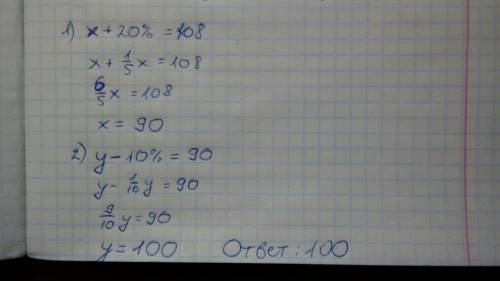 1) x + 20% = 108
x + 1/5 x = 108
6/5 x = 108
x = 90
2) y - 10% = 90
y - 1/10 y = 90
9/10 y = 90
y = 100 Ответ: 100